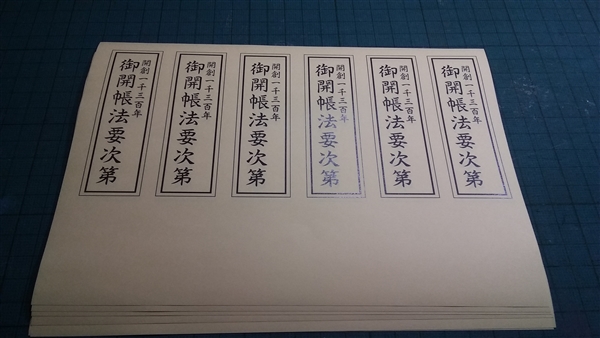 開創一千三百年
御開帳法要次第
開創一千三百年
御開帳法要次第
開創一千三百年
御開帳法要次第
開創一千三百年
御開帳法要次第
開創一千三百年
御開帳法要次第
開創一千三百年
御開帳法要次第